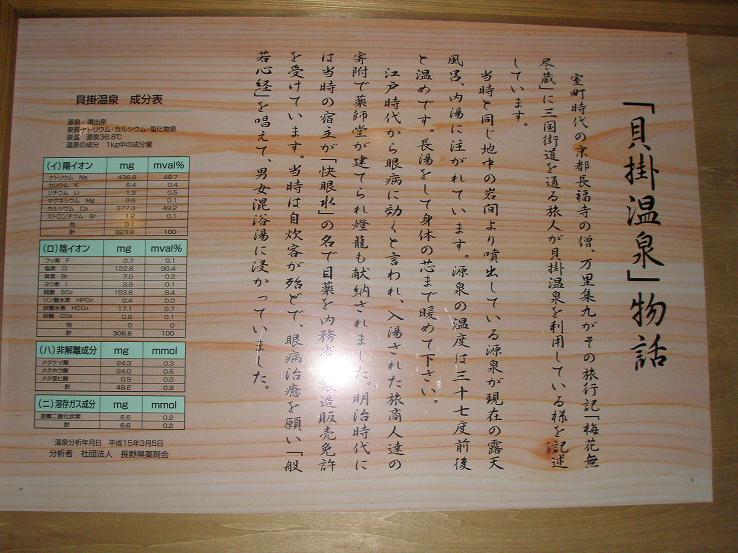 「貝掛温泉」物話
室町時代の京都長福寺の僧、万里集九がその旅行記「梅花無
尽蔵」に三国街道を通る旅人が貝掛温泉を利用している様を記述
しています。
当時と同じ地中の岩間より噴出している源泉が現在の露天
風呂、内湯に注がれています。源泉の温度は三十七度前後
と温めです。長湯をして身体の芯まで暖めて下さい。
江戸時代から眼病に効くと言われ、入湯された旅商人達の
寄附で薬師堂が建てられ燈龍も献納されました。明治時代に
は当時の宿主が「快眼水」の名で目薬を内務省 製造販売免許
を受けています。当時は自炊客が殆どで、眼病治癒を願い「般
若心経」を唱えて、男女混浴湯に浸かっていました。
貝掛温泉 成分表
源泉 湧出泉
泉質 ナトリウム・カルシウム・塩化物泉
泉温 源泉36.8℃
温泉の成分 1kg中の成分量
(イ)陽イオン mg mval%
ナトリウム Na 436.9 49.7
カリウム K 6.4 0.4
リチウム Li 1.3 0.5
マグネシウム Mg 0.6 0.1
カルシウム Ca 377.3 49.2
ストロンチウム Sr 1.2 0.1
他 0.1
計 823.8 100
(ロ)陰イオン mg mval%
フッ素 F 0.7 0.1
塩素 Cl 122.8 90.4
臭素 Br 7.0 0.2
ヨウ素 I 3.9 0.1
硫酸 SO₄ 153.8 8.4
リン酸水素 HPO₄ 0.4 0.0
炭酸水素 HCO₃ 17.1 0.7
炭酸 CO₃ 0.9 0.1
他 0 0
計 306.6 100
(ハ)非解離成分 mg mmol
メタケイ酸 24.3 0.3
メタホウ酸 24.0 0.6
メタ亜ヒ酸 0.9 0.0
計 49.2 0.9
(ニ)溶存ガス成分 mg mmol
遊離二酸化炭素 6.6 0.2
計 6.6 0.2
温泉分析年月日 平成15年3月5日
分析者 社団法人 長野県薬剤会